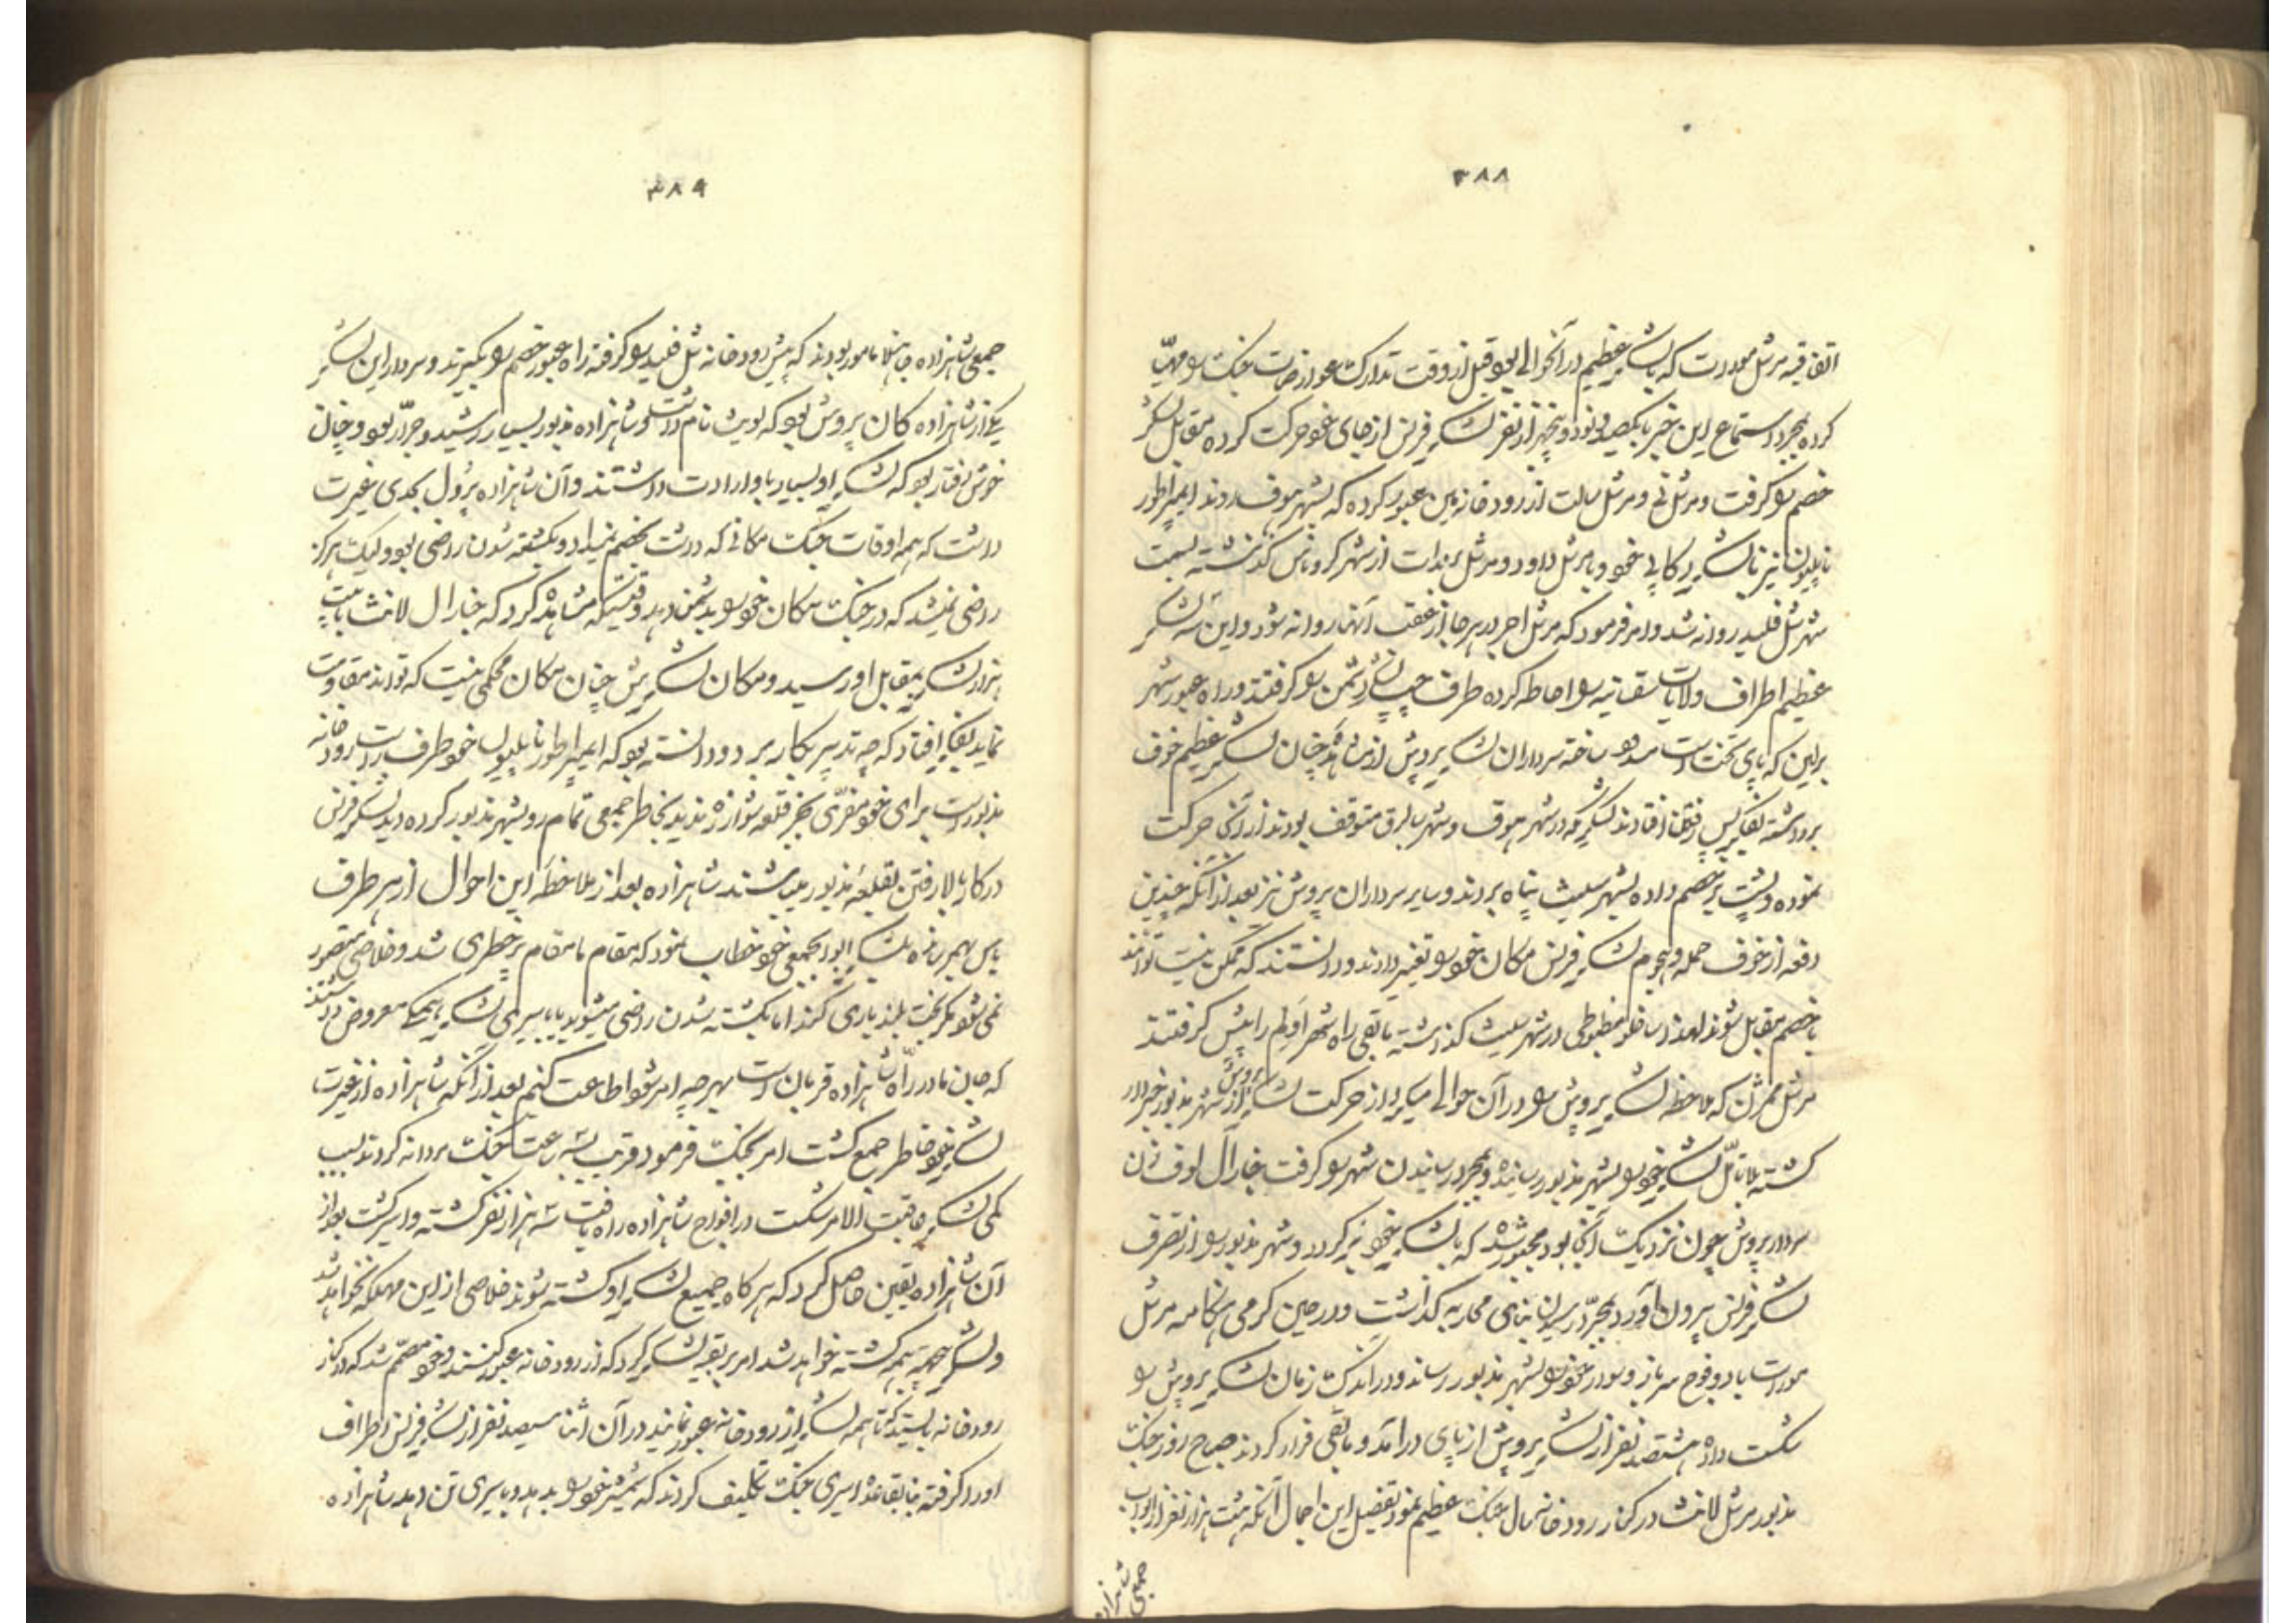 ۳۸۸
اتفاقیه مرشل مورات که با لشکر عظیم در آنحوالی بود قبل از وقت تدارکت جنکت را مهیّا
کرده بمجرد استماع این خبر با یکصد و نود و پنجهزار نفر لشکر فرنس از جای خود حرکت کرده مقابل لشکر
خصم را کرفت و مرشل نی و مرشل سالت از رودخانه مین عبور کرده که بشهر هوف روند ایمپراطور
ناپلیون نیز با لشکر رکابی خود و با مرشل داود و مرشل برنادات از شهر کروناس کذشته بسمت
شهر شل فلید روانه شد و امر فرمود که مرشل اجرد هرجا از عقب آنها روانه شود و این سه لشکر
عظیم اطراف ولایات را احاطه کرده طرف چپ لشکر دشمن را کرفتند و راه عبور شهر
برلین که پای تخت است مسدود ساخته سرداران لشکر پروش از مشاهده چنان لشکر عظیم خوف
برداشته بفکر پس رفتن افتادند لشکری که در شهر هوف و شهر سالبرق متوقف بودند از آنجا حرکت
نموده و پشت بر خصم داده بشهر سلیث پناه بردند و سایر سرداران پروش نیز بعد از آنکه چندین
دفعه از خوف حمله و هجوم لشکر فرنس مکان خود را تغییر دادند و دانستند که ممکن نیست توانند
با خصم مقابل شوند لهذا ساخلو مضبوطی در شهر سلیث کذاشته باقی راه شهر اولم را پیش کرفتند
مرشل که ملاحظه لشکر پروش را در آن حوالی میکرد از حرکت لشکر پروش از شهر مذبور خبردار
کشته بلا تأمّل لشکر خود را بشهر مذبور رسانیده و بمجرد رسانیدن شهر را کرفت جنارال اوف ژن
سردار پروش چون نزدیکت آنجا بود مجبور شد که با لشکر خود برکردد و شهر مذبور را از تصرف
لشکر فرنس بیرون آورد بمجرّد رسیدن بنای محاربه کذاشت و در حین کرمی هنکامه مرشل
مورات با دو فوج سرباز و سواره خود را بشهر مذبور رساند و در اندکت زمان لشکر پروش را
شکست داد هشتصد نفر از لشکر پروش از پای درآمد و باقی فرار کردند صباح روز جنکت
مذبور مرشل لانث در کنار رودخانه سال جنکت عظیم نمود تفصیل این اجمال آنکه هشت هزار نفر از ابواب
جمعی شاهزاده
۳۸۹
جمعی شاهزاده مامور بودند که پیش رودخانه شل فلید را کرفته راه عبور خصم را بکیرند و سردار این لشکر
یکی از شاهزاده کان پروش بود که لویث نام داشت و شاهزاده مذبور بسیار رشید و جرّار بود و چنان
خوش رفتار بود که لشکر او بسیار با او ارادت داشتند و آن شاهزاده پردل بحدی غیرت
داشت که همه اوقات جنکت مکانی که داشت بخصم نمیداد و بکشته شدن راضی بود و لیکت هرکز
راضی نمیشد که در جنکت مکان خود را بدشمن دهد وقتیکه مشاهده کرد که جنارال لانث با بیست
هزار لشکر بمقابل او رسید و مکان لشکرش چنان مکان محکمی نیست که تواند مقاومت
نماید بفکر افتاد که چه تدبیر بکار برد و دانسته بود که ایمپراطور ناپلیون خود طرف راست رودخانه
مذبور است برای خود مفرّی بجز قلعه ندید بخاطر جمعی تمام رو بشهر مذبور کرده دید لشکر فرنس
در کار بالا رفتن بقلعه مذبور میباشند شاهزاده بعد از ملاحظه این احوال از هر طرف
یاس بهم رسانده بلشکر ابوابجمعی خود خطاب نمود که مقام ما مقام پر خطری شد و خلاصی متصور
نمی شود مکر بخت بلند یاری کند آیا بکشته شدن راضی میشوید یا باسیری لشکر همکی معروض داشتند
که جان ما در راه شاهزاده قربان است بهر چه امر شود اطاعت کنیم بعد از آنکه شاهزاده از غیرت
لشکر خود خاطر جمع کشت امر بجنکت فرمود قریب سه ساعت جنکت مردانه کردند بسبب
کمی لشکر عاقبت الامر شکست در افواج شاهزاده راه یافت سه هزار نفر کشته و اسیر کشت بعد از
آن شاهزاده یقین حاصل کرد که هرکاه جمیع لشکر او کشته شوند خلاصی از این مهلکه نخواهد شد
و لشکر همه کشته خواهد شد امر ببقیه لشکر کرد که از رودخانه عبور کنند و خود مصمّم شد که در کنار
رودخانه بایستد تا همه لشکر از رودخانه عبور نمایند در آن اثنا سیصد نفر از لشکر فرنس اطراف
او را کرفته بنا بقاعده اسیری جنکت تکلیف کردند که شمشیر خود را بدهد و باسیری تن دهد شاهزاده